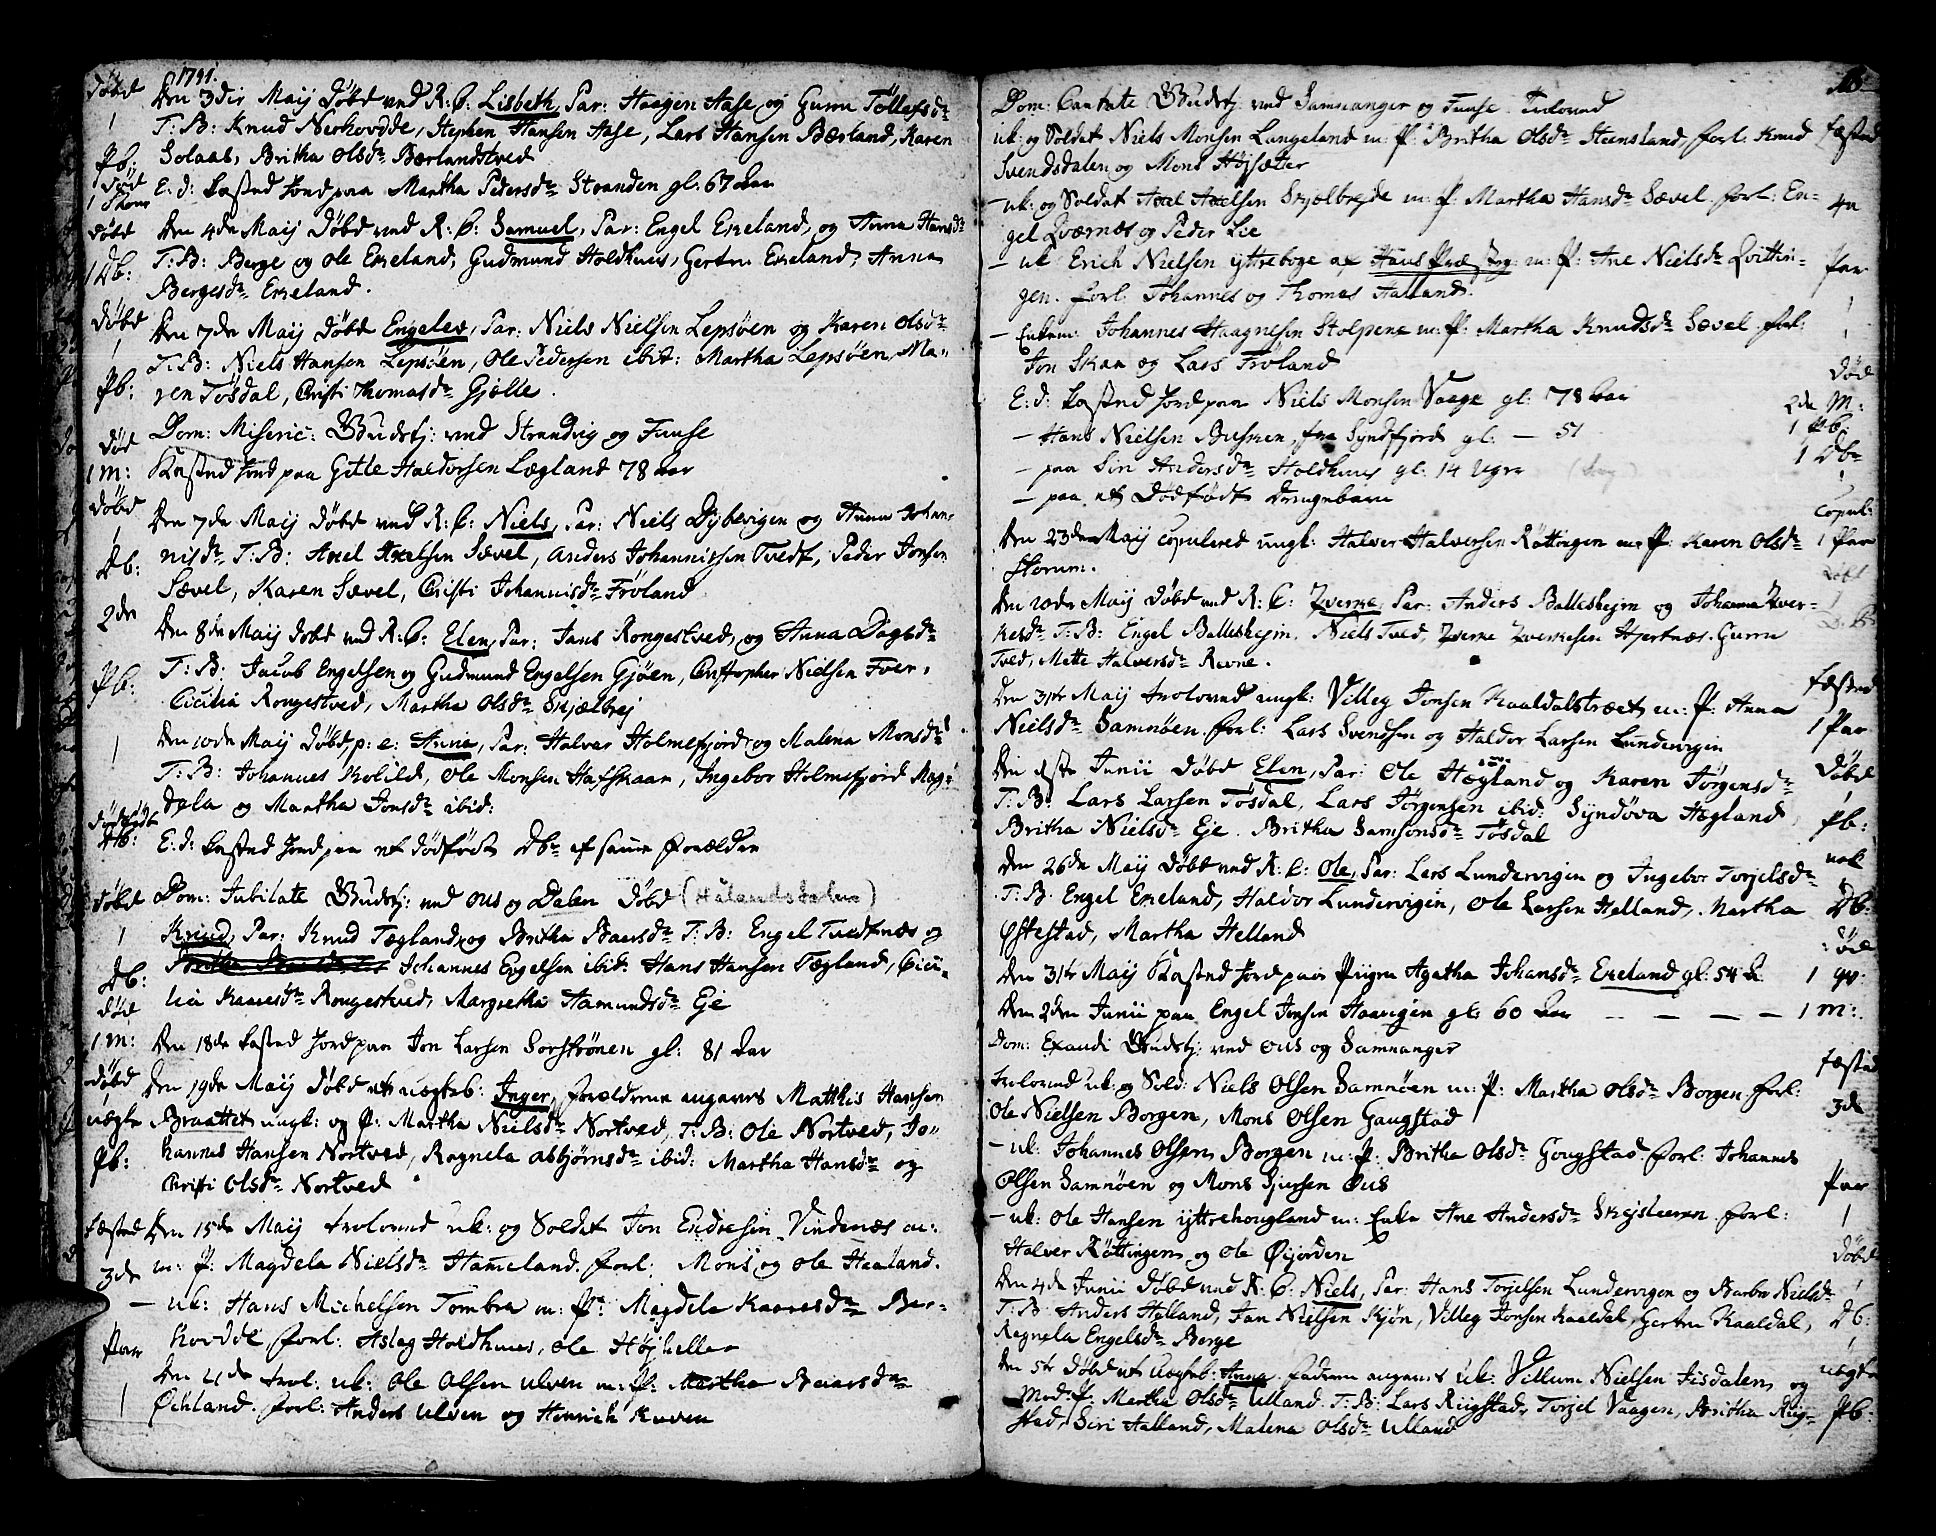 1791.
Døbd Den 3die Maij Døbd ved K: C: Lisbeth, Par: Haagen Aase og Guru Tøllefsd:
1 T: B: Knud Nerhovdde, Stephen Hansen Aase, Lars Hansen Bærland, Karen
Pb: Solaas, Britha Olsd: Bærlandstved
Død E: d: kasted Jord paa Martha Pedersd: Stranden gl: 67 Aar
Døbd Den 4de Maij Døbd ved K: C: Samuel, Par: Engel Eneland, og Anna Hansd:
1 Db: T: B: Berge og Ole Eneland, Gudmund Holdhuus, Gertru Eneland, Anna
Bergesd: Eneland.
Døbd Den 7de Maij Døbd Engelev, Par: Niels Nielsen Lepsøen og Karen Olsd:
1 T: B: Niels Hansen Lepsøen, Ole Pedersen ibid: Martha Lepsøen, Ma-
Pb: ren Tøsdal, Cristi Thomasd: Gjelle.
Død Dom: Miseric: Gudstj: ved Strandvig og Fuuse
1 M: Kasted Jord paa Gitle Haldorsen Lægland 78 Aar
Døbd Den 7de Maij Døbd ved K: C: Niels, Par: Niels Dybevigen og Anna Johan-
1 nisd: T: B: Axel Axelsen Sævel, Anders Johannissen Tvedt, Peder Jonsen
Db: Sævel, Karen Sævel, Cristi Johannisd: Frøland
2de Den 8de Maij Døbd ved K: C: Elen, Par: Jens Rongestved, og Anna Dagsd:
Pb: T: B: Jacob Engelsen og Gudmund Engelsen Gjøen, Cristopher Nielsen Tver,
Cicilia Rongestved, Martha Olsd: Skjælbrej
1 Den 10de Maij Døbd, p: e: Anna, Par: Halvar Holmefjord og Malena Monsd:
T: B: Johannes Kolild, Ole Monsen Hafskaar, Ingebor Holmefjord Mag-
dela og Martha Jonsd: ibid:
Dødfødt Db: E: d: kasted Jord paa et dødfødt Db: af samme Forældre
Døbd Dom: Jubilate Gudstj: ved Ous og Dalen Døbd (Hålandsdalen)
1 Knud, Par: Knud Tægland og Britha Baarsd: T: B: Engel Tvedtnæs og
Db: Johannes Engelsen ibid: Hans Hansen Tægland, Cici-
Død lia Kaaresd: Rongestved, Margretha Aamundsd: Eje
1 M: Den 18de kasted Jord paa Jon Larsen Sorstrønen gl: 81 Aar
Døbd Den 19de Maij Døbd et uægteb: Inger, Forældrene angaves Matthis Hansen
uægte Braattet ungk: og P: Martha Nielsd: Nortved, T: B: Ole Nortved, Jo-
Pb: hannes Hansen Nortved, Ragnela Asbjørnsd: ibid: Martha Hansd: og
Cristi Olsd: Nortved
Fæsted Den 15de Maij trolovede uk: og Soldat Jon Endresen Vindenæs m:
3de m: P: Magdela Nielsd: Hameland. Forl: Mons og Ole Haaland.
— uk: Hans Michelsen Tombre m: P: Magdela Kaaresd: Ber-
Par hovdde Forl: Aslag Holdhuus, Ole Højheller
Den 21de trol: uk: Ole Olsen Ulven m: P: Martha Baarsd:
1 Øchland. Forl: Anders Ulven og Henrich Kuven
Dom: Cantate Gudstj: ved Samnanger og Fuuse. Trolovede
uk: og Soldat Niels Monsen Langeland m: P: Britha Olsd: Steensland, Forl: Knud Fæsted
Svendsdalen og Mons Højsæter
— uk: og Soldat Axel Axelsen Skjælbrejde m: P: Martha Hansd: Sævel. Forl: En- 4re
gel Qværnes og Peder Lie
— uk: Erich Nielsen ijttreboge af Hans P: m: P: Ane Nielsd: Qvittin- Par
gen. Forl: Johannes og Thomas Halland. 1
— Enkem: Johannes Haagnesen Stolpene m: P: Martha Knudsd: Sævel. Forl: 1
Jon Skaar og Lars Frøland
Død
E: d: kasted Jord paa Niels Monsen Vaage gl: 78 Aar 2de M:
— Hans Nielsen Busken, fra Syndfjord gl: — 51 1 Pb:
— paa Siri Andersd: Holdhuus gl: 14 Uger 1 Db:
— paa et Dødfødt Drengebarn 1
Copul:
Den 23de Maij copulered ungk: Halver Halversen Røttingen m: P: Karen Olsd: 1 Par
Skorum.
Døbt
Den 20de Maij Døbd ved K: C: Zverne, Par: Anders Balleshejm og Johanna Zver- 1
kesd: T: B: Engel Balleshejm, Niels Tved, Zverke Zverkesen Hjertnæs. Guru
Tved, Mette Halversd: Revne.
Fæsted
Den 31te Maij trolovede ungk: Villeg Jonsen Kaaldalstræet m: P: Anna
Nielsd: Samnøen, Forl: Lars Svendsen og Haldor Larsen Lundervigen 1 Par
Den 1ste Junii Døbd Elen, Par: Ole Hægland og Karen Jørgensd: Døbd
T: B: Lars Larsen Tøsdal, Lars Jørgensen ibid: Syndøva Hægland, 1
Britha Nielsd: Eje. Britha Samsonsd: Tøsdal Pb:
Den 26de Maij Døbd ved K: C: Ole, Par: Lars Lundervigen og Ingebor Torjelsd: nok
T: B: Engel Eneland, Haldor Lundervigen, Ole Larsen Helland, Martha Db:
Øfstestad, Martha Helland
Død
Den 31te Maij Kasted Jord paa Pigen Agatha Johansd: Eneland gl: 54 A: 1 qv:
Den 2den Junii paa Engel Jonsen Haavigen gl: 60 Aar — — — 1 M:
Dom: Exaudi Gudstj: ved Ous og Samnanger
Fæsted
trolovede uk: og Sold: Niels Olsen Samnøen m: P: Martha Olsd: Borgen. Forl:
Ole Nielsen Borgen, Mons Olsen Gaugstad 3de
— uk: Johannes Olsen Borgen m: P: Britha Olsd: Gougstad. Forl: Johannes
Olsen Samnøen og Mons Sjursen Ous Par
— uk: Ole Hansen ijttrehougland m: Enke Ane Andersd: Skejsleeren Forl: 1
Halver Røttingen og Ole Øijorden Døbd
Den 4de Junii Døbd ved K: C: Niels, Par: Hans Torjelsen Lundervigen og Barbra Nielsd: 1
T: B: Anders Helland, Jan Nielsen Skjøn, Villeg Jonsen Kaaldal, Gertru Kaaldal, Db:
Ragnela Engelsd: Berge 1
Den 5te Døbd et Uægteb: Anna. Faderen angaves uk: Villum Nielsen Jisdalen og uægte
Mod: P: Martha Olsd: Ulland. T: B: Lars Riigstad, Torjel Vaagen, Britha Riig- Pb:
stad, Siri Halland, Malena Olsd: Ulland